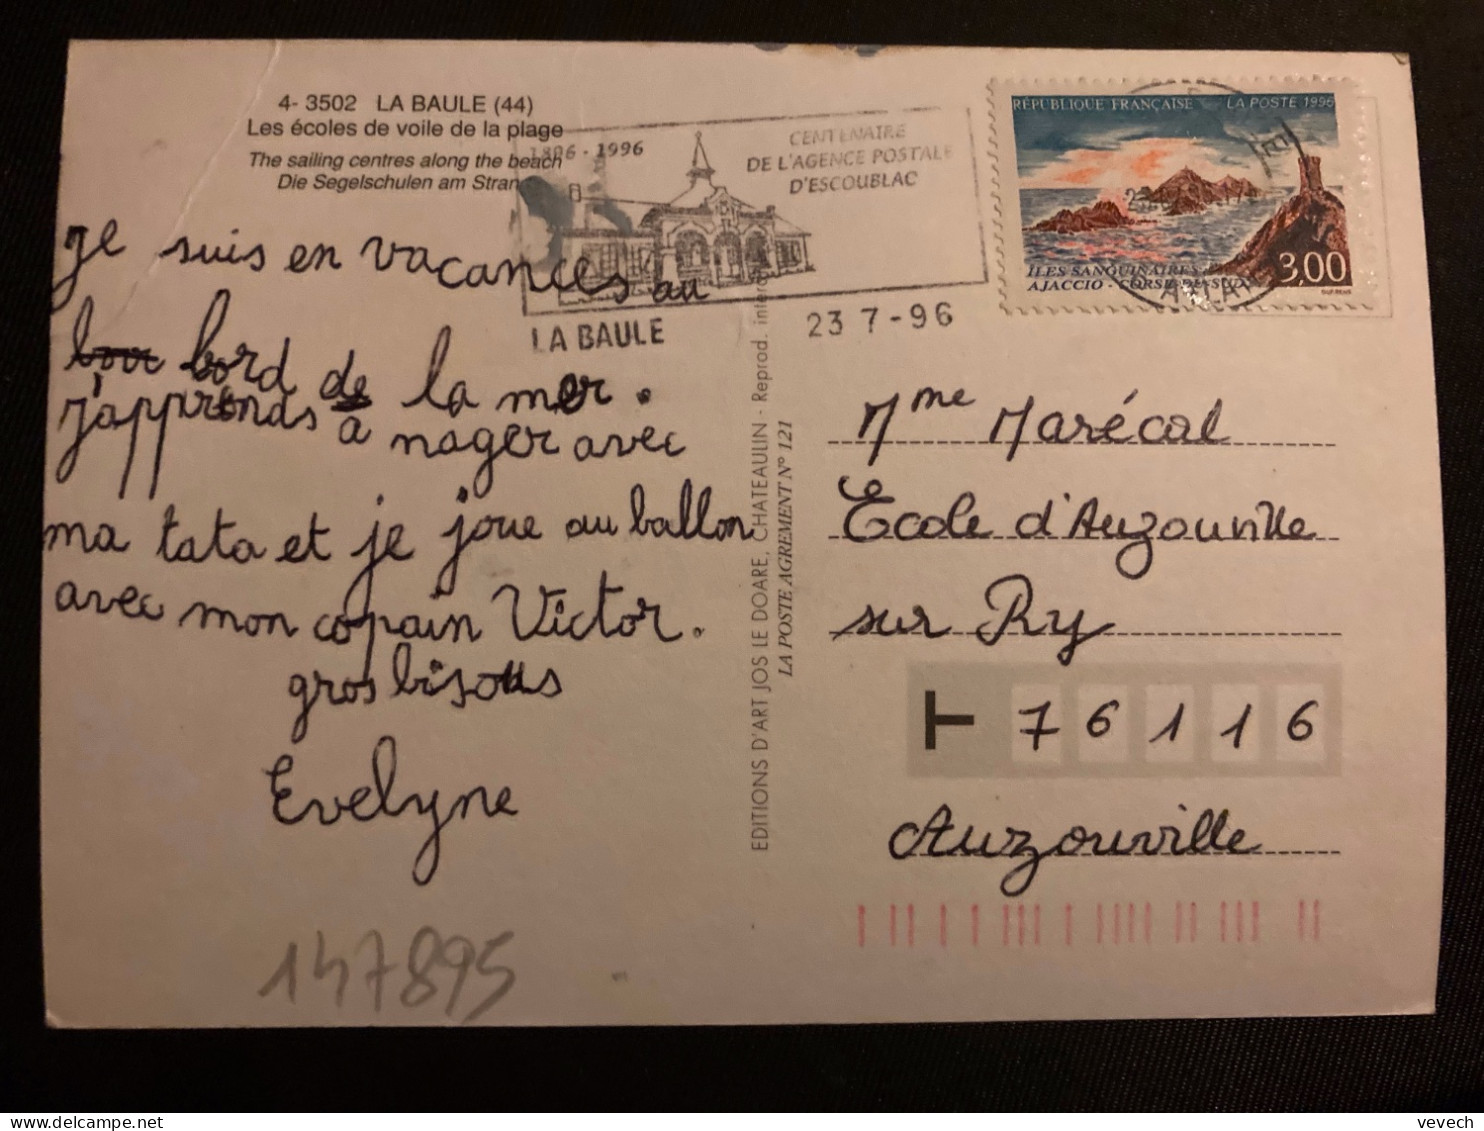 4- 3502 LA BAULE (44)
Les écoles de voile de la plage
The sailing centres along the beach
Die Segelschulen am Stran
1896 - 1996
CENTENAIRE
DE L'AGENCE POSTALE
D'ESCOUBLAC
LA BAULE
23 7 - 96
RÉPUBLIQUE FRANÇAISE LA POSTE 1996
ILES SANGUINAIRES
AJACCIO - CORSE-DU-SUD
3,00
je suis en vacances au
bord de la mer.
j'apprends à nager avec
ma tata et je joue au ballon
avec mon copain Victor.
gros bisous
Evelyne
147895
EDITIONS D'ART JOS LE DOARE, CHATEAULIN - Reprod. interd
LA POSTE AGREMENT N° 121
Mme Marécal
Ecole d'Auzouville
sur Ry
T 76116
Auzouville